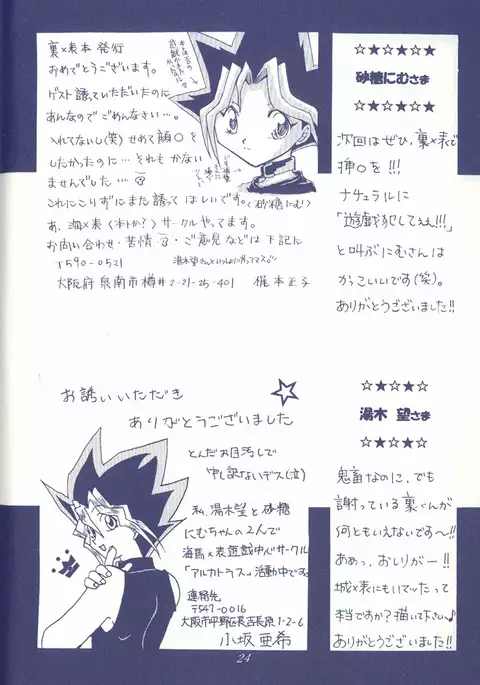 裏×表本 発行
おめでとうございます。
ゲスト誘っていただいたのに
あんなのでごめんなさい…。
入れてないし(笑) せめて顔○を
したかったのに… それもかない
ませんでした…
これにこりずにまた誘ってほしいです。
(砂糖にむ)
あ、海×表(本トか?)サークルやってます。
お問い合わせ・苦情・ご意見などは下記に
〒590-0521
湯木望さんといっしょに
大阪府泉南市樽井2-21-25-401 梶本正子
☆★☆★☆★
砂糖にむさま
☆★☆★☆★
次回はぜひ、裏×表で
挿○を!!!
ナチュラルに
「遊戯犯してぇん!!!」
と叫ぶにむさんは
かっこいいです(笑)。
ありがとうございました!!
お誘いいただき
ありがとうございました
とんだお目汚しで
申し訳ないデス(泣)
私、湯木望と砂糖
にむちゃんの2人で
海馬×表遊戯中心サークル
「アルカトラス」活動中です。
連絡先
〒547-0016
大阪市平野区長吉長原1-2-6
小坂亜希
☆★☆★☆
湯木 望さま
☆★☆★☆
鬼畜なのに、でも
謝っている裏くんが
何ともいえないです〜!!
ああっ、おしりがー!!
城×表にもいてったって
本当ですか?描いて下さい♪
ありがとうございました!!
24